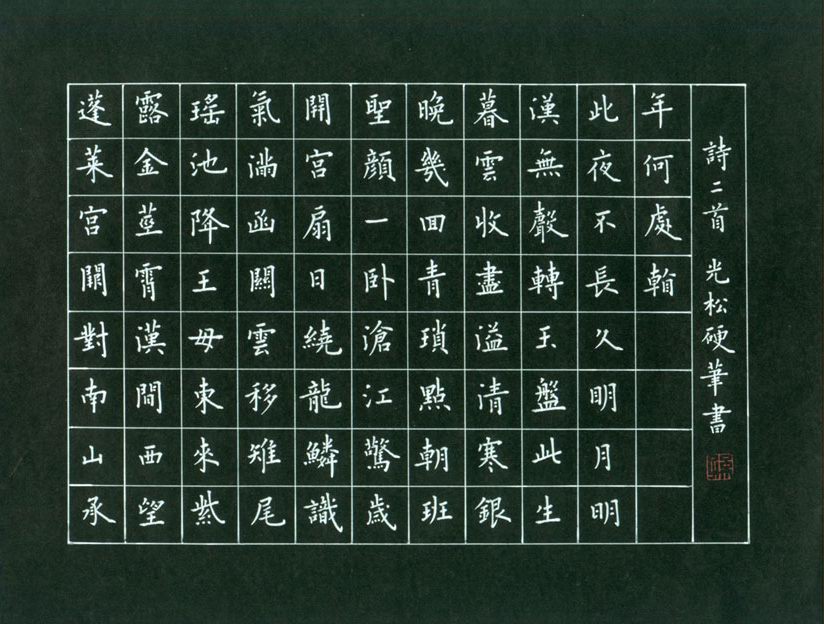 蓬萊宮闕對南山承
露金莖霄漢間西望
瑤池降王母東來紫
氣滿函關雲移雉尾
開宮扇日繞龍鱗識
聖顏一卧滄江驚歲
晚幾回青瑣點朝班
暮雲收盡溢清寒銀
漢無聲轉玉盤此生
此夜不長久明月明
年何處看
詩二首 光松硬筆書